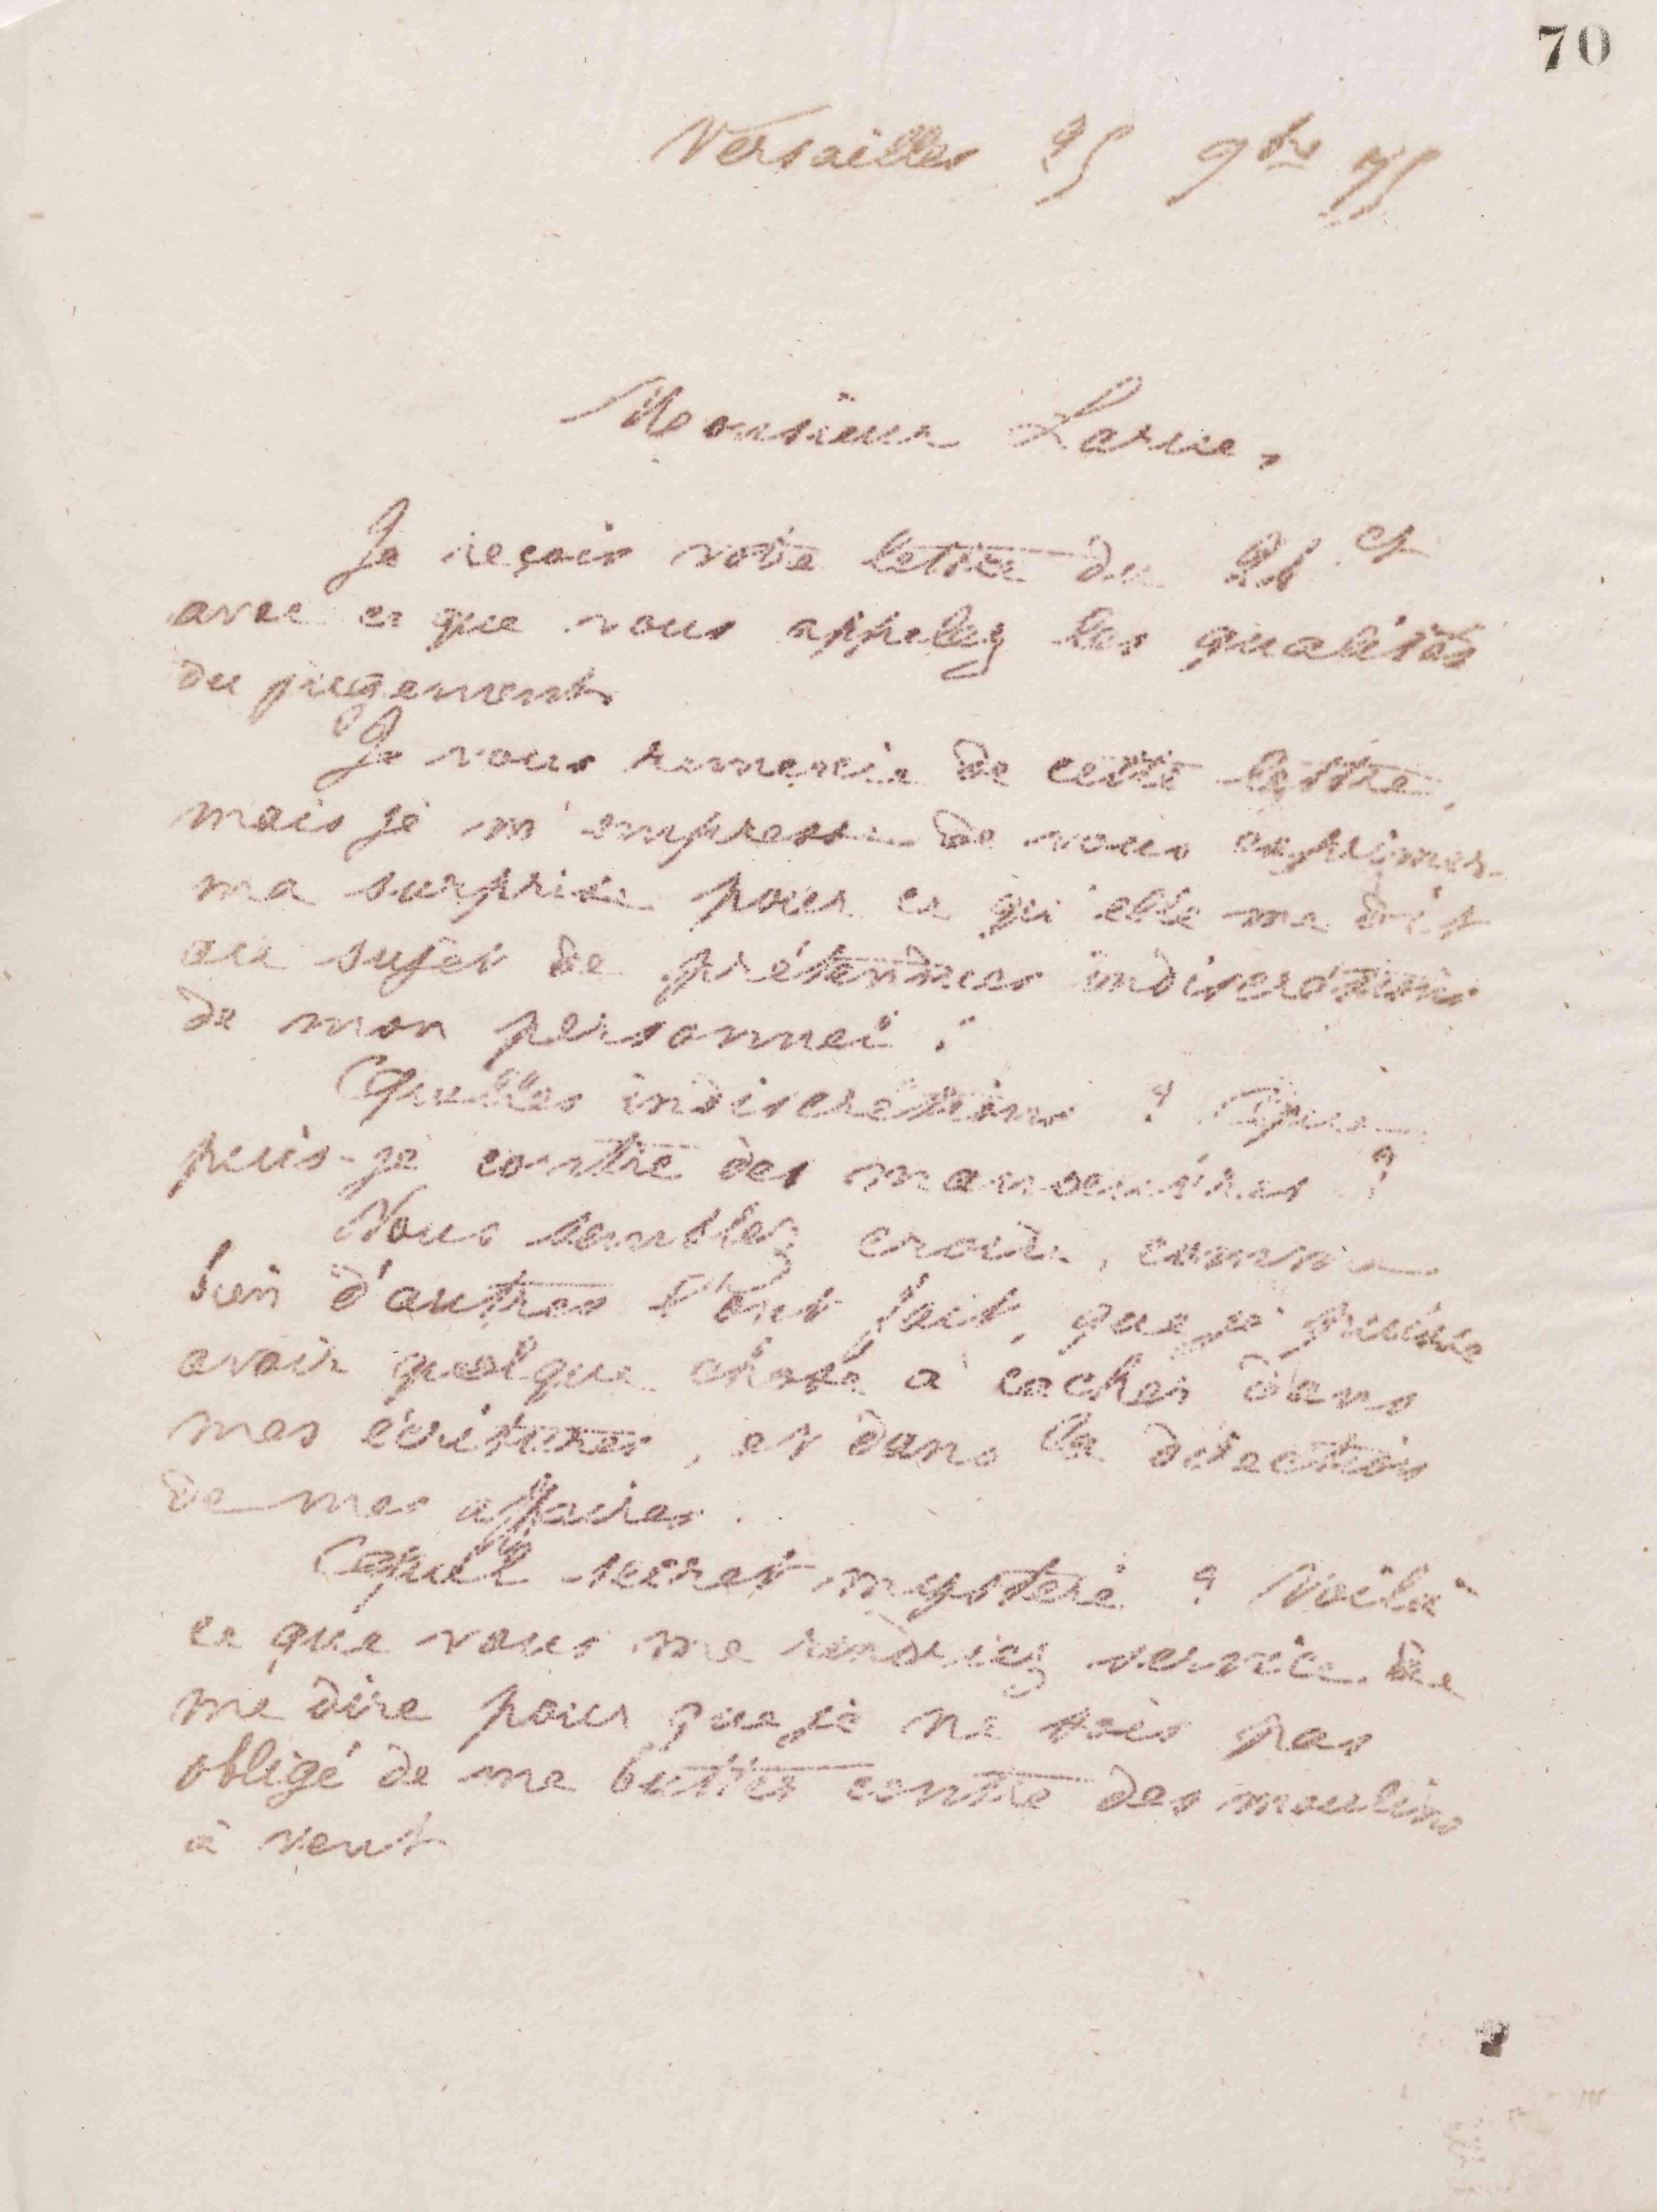 70
Versailles 25 9bre 75
Monsieur Larue,
Je reçois votre lettre du 21 ct
avec ce que vous appelez les qualités
du jugement.
Je vous remercie de cette lettre,
mais je m'empresse de vous exprimer
ma surprise pour ce qu'elle me dit
au sujet de prétendues indiscrétions
de mon personnel.
Quelles indiscrétions ? Que
puis-je contre des manoeuvres ?
Vous semblez croire, comme
bien d'autres l'ont fait, que je puisse
avoir quelque chose à cacher dans
mes écritures, et dans la direction
de mes affaires.
Quel secret mystère ? Voilà
ce que vous me rendriez service de
me dire pour que je ne sois pas
obligé de me butter contre des moulins
à vent